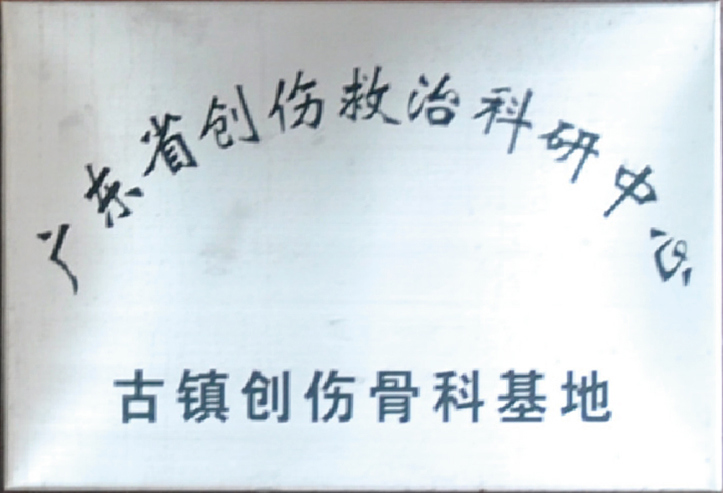 广东省创伤救治科研中心
古镇创伤骨科基地